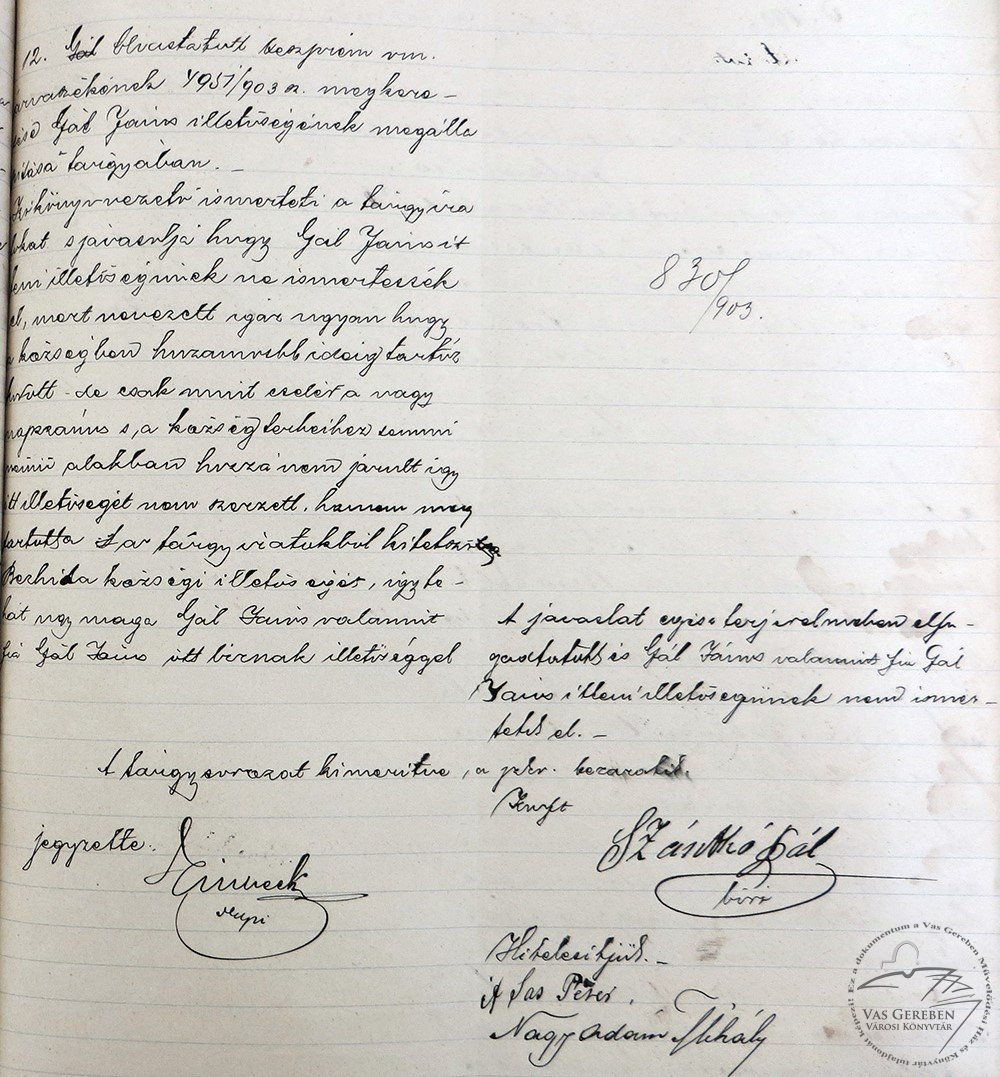 12. Gál Olvastatott veszprém vm.
árvaszékének 4951/903 sz. megkere-
ése Gál János illetőségének megálla
pitása tárgyában. -
Közkönyvvezető ismerteti a tárgy ira
tokat s javasolja hogy Gál Jánost
leni illetőségünek ne ismertessék
el, mert nevezett igaz ugyan hogy
a községben huzamosabb ideig tartóz
kodott - de csak mint cseléd, a vagy
napszámos s, a község terheihez semmi
némü alakban hozzá nem járult igy
itt illetőségét nem szerzett, hanem meg
tartotta az a tárgy iratokból kitetsző
Berhida községi illetőségét, igy te-
hát ugy maga Gál János valamint
fia Gál János ott birnak illetőséggel
830/903.
A javaslat egész terjedelmében elfo-
gadtatott és Gál János valamint fia Gál
János itteni illetőségünek nem ismer-
tetik el. -
A tárgysorozat kimeritve, a jzkv. bezáratik.
Kmft
jegyzette:
Szántó Gál
biró
Hitelesitjük. -
Sas Péter.
Nagy Ádám Mihály
Ez a dokumentum a Vas Gereben Művelődési Ház és Könyvtár tulajdonát képezi!
VAS GEREBEN
VÁROSI KÖNYVTÁR